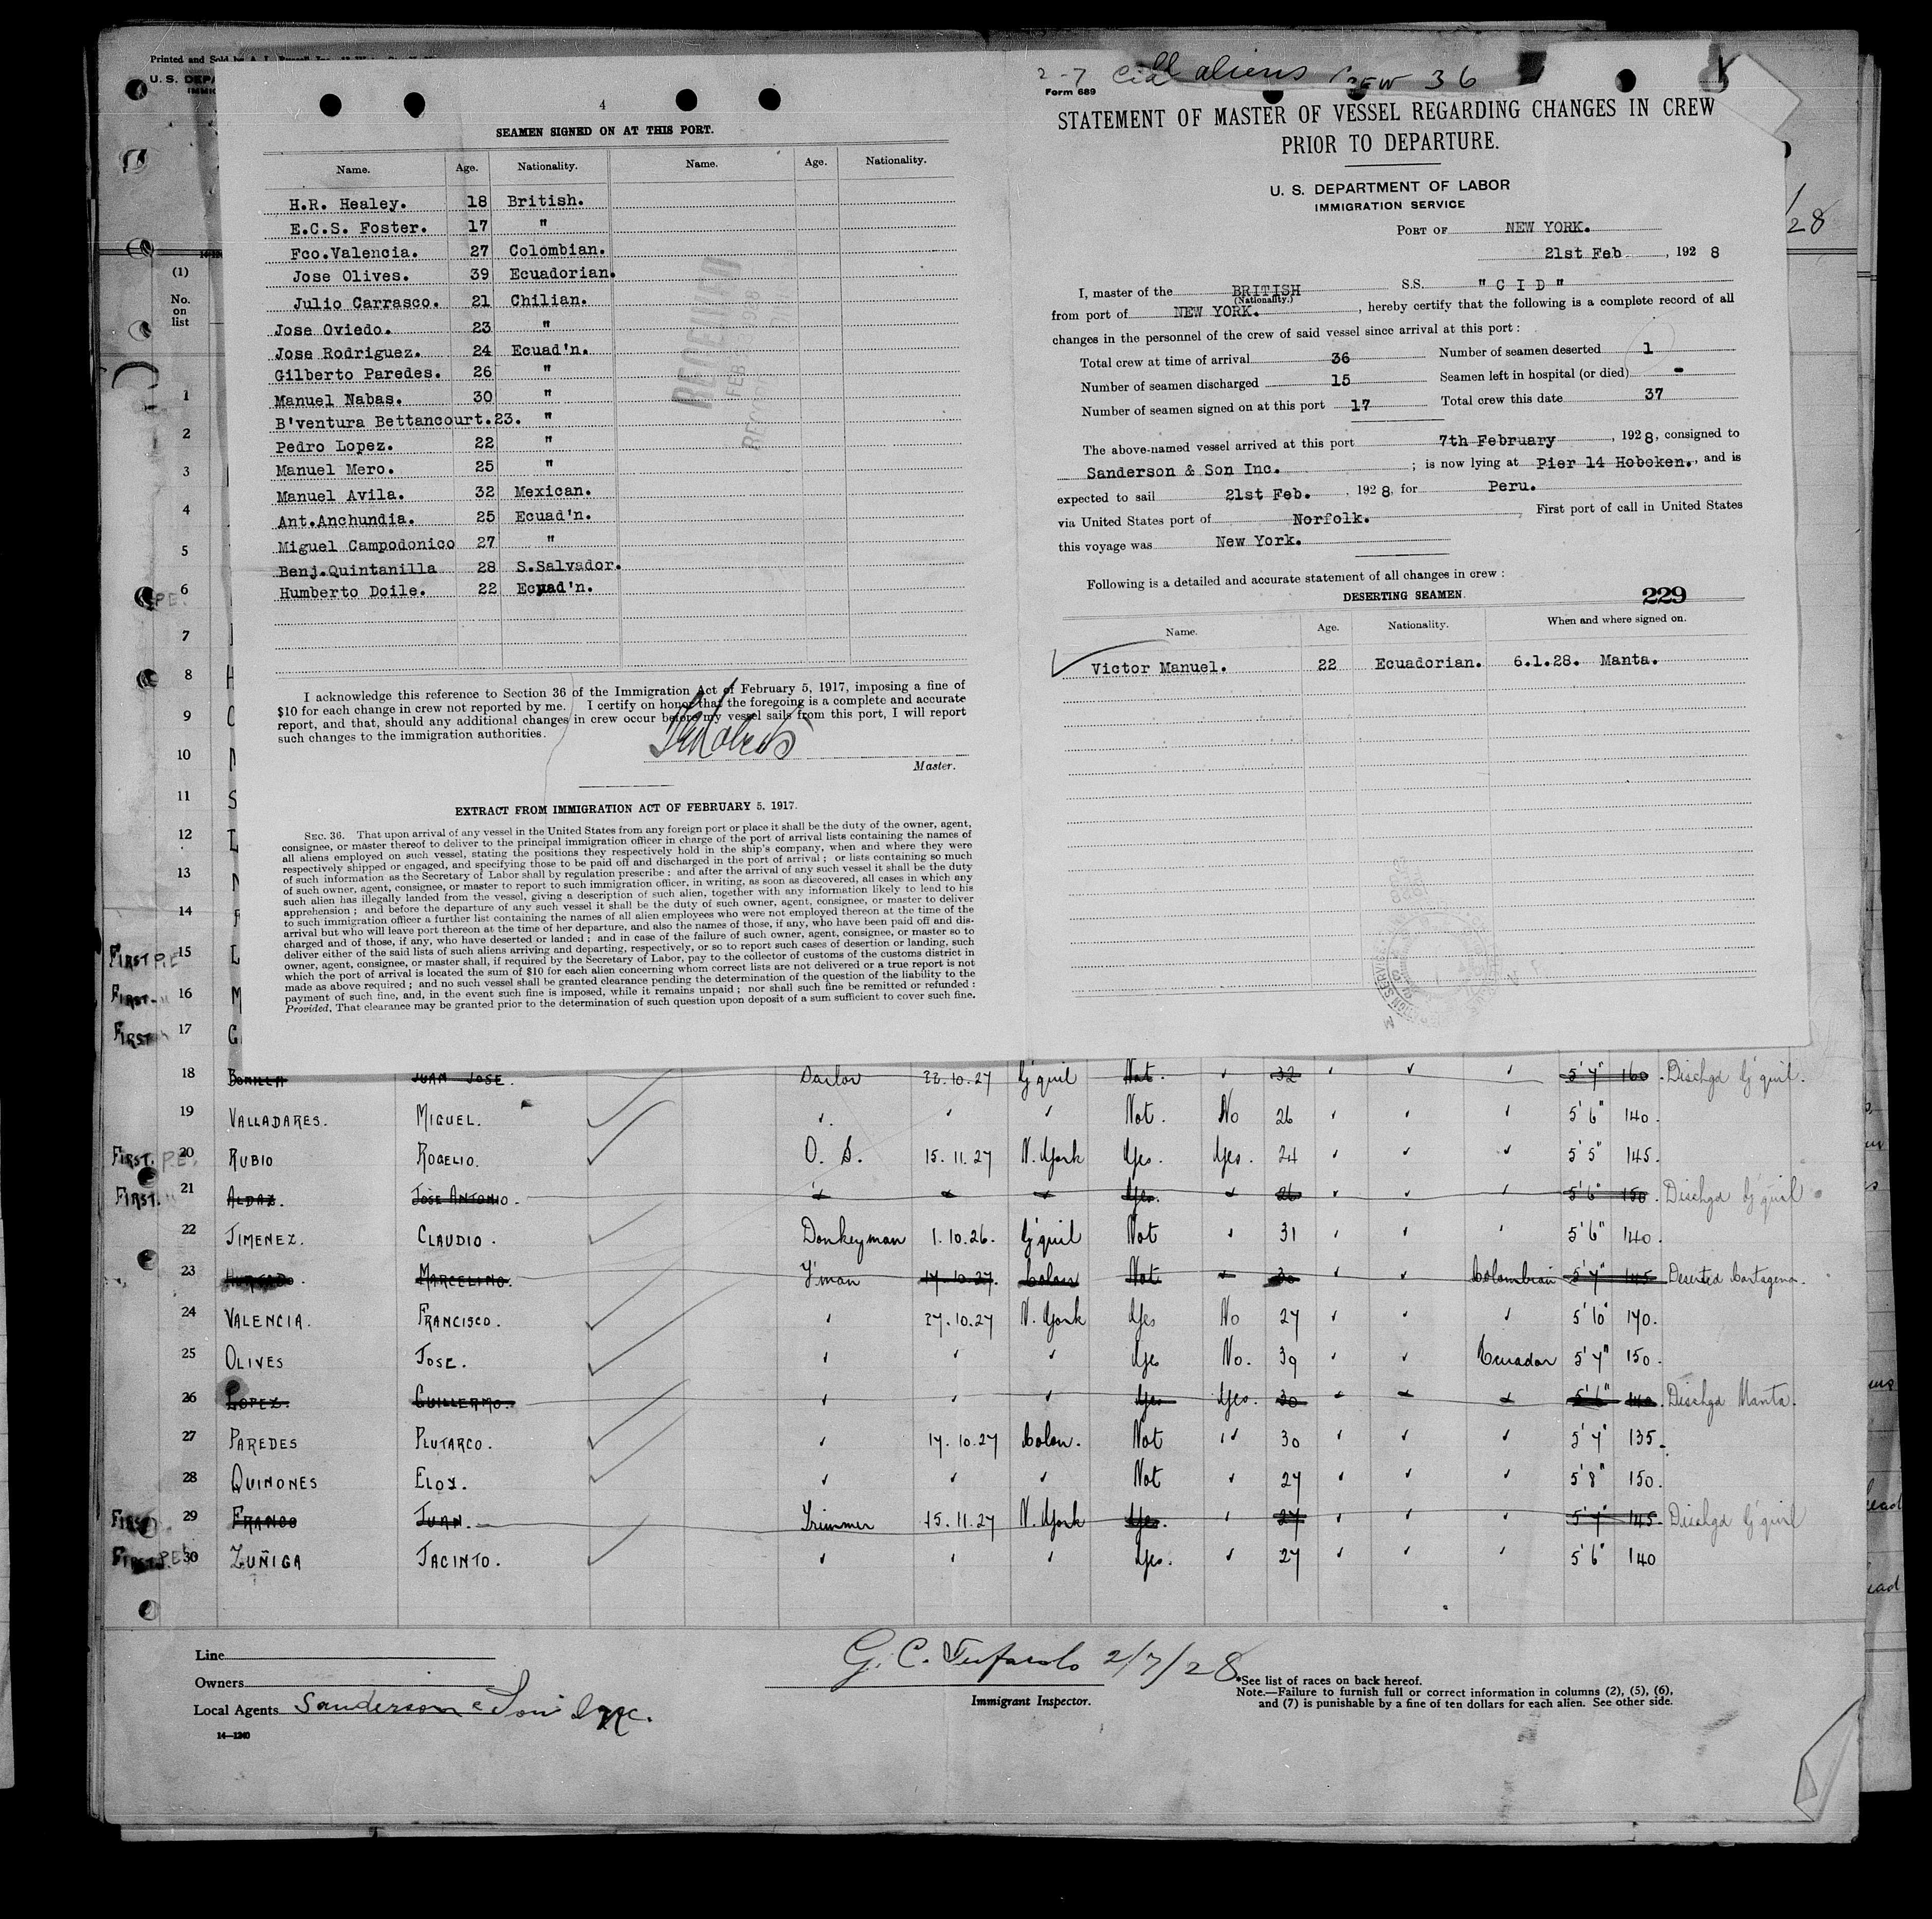 Printed and Sold by
U. S. DEPA
4
SEAMEN SIGNED ON AT THIS PORT.
Name. Age. Nationality. Name. Age. Nationality.
H.R. Healey. 18 British.
E.C.S. Foster. 17 "
Fco.Valencia. 27 Colombian.
Jose Olives. 39 Ecuadorian.
Julio Carrasco. 21 Chilian.
Jose Oviedo. 23 "
Jose Rodriguez. 24 Ecuad'n.
Gilberto Paredes. 26 "
Manuel Nabas. 30 "
B'ventura Bettancourt.23. "
Pedro Lopez. 22 "
Manuel Mero. 25 "
Manuel Avila. 32 Mexican.
Ant.Anchundia. 25 Ecuad'n.
Miguel Campodonico 27 "
Benj.Quintanilla 28 S.Salvador.
Humberto Doile. 22 Ecuad'n.
RECEIVED
I acknowledge this reference to Section 36 of the Immigration Act of February 5, 1917, imposing a fine of
$10 for each change in crew not reported by me. I certify on honor that the foregoing is a complete and accurate
report, and that, should any additional changes in crew occur before my vessel sails from this port, I will report
such changes to the immigration authorities.
Master.
EXTRACT FROM IMMIGRATION ACT OF FEBRUARY 5, 1917.
SEC. 36. That upon arrival of any vessel in the United States from any foreign port or place it shall be the duty of the owner, agent,
consignee, or master thereof to deliver to the principal immigration officer in charge of the port of arrival lists containing the names of
all aliens employed on such vessel, stating the positions they respectively hold in the ship's company, when and where they were
respectively shipped or engaged, and specifying those to be paid off and discharged in the port of arrival; or lists containing so much
of such information as the Secretary of Labor shall by regulation prescribe; and after the arrival of any such vessel it shall be the duty
of such owner, agent, consignee, or master to report to such immigration officer, in writing, as soon as discovered, all cases in which any
such alien has illegally landed from the vessel, giving a description of such alien, together with any information likely to lead to his
apprehension; and before the departure of any such vessel it shall be the duty of such owner, agent, consignee, or master to deliver
to such immigration officer a further list containing the names of all alien employees who were not employed thereon at the time of the
arrival but who will leave port thereon at the time of her departure, and also the names of those, if any, who have been paid off and dis-
charged and of those, if any, who have deserted or landed; and in case of the failure of such owner, agent, consignee, or master so to
deliver either of the said lists of such aliens arriving and departing, respectively, or so to report such cases of desertion or landing, such
owner, agent, consignee, or master shall, if required by the Secretary of Labor, pay to the collector of customs of the customs district in
which the port of arrival is located the sum of $10 for each alien concerning whom correct lists are not delivered or a true report is not
made as above required; and no such vessel shall be granted clearance pending the determination of the question of the liability to the
payment of such fine, and, in the event such fine is imposed, while it remains unpaid; nor shall such fine be remitted or refunded:
Provided, That clearance may be granted prior to the determination of such question upon deposit of a sum sufficient to cover such fine.
2-7 Cid all aliens CREW 36
Form 689
STATEMENT OF MASTER OF VESSEL REGARDING CHANGES IN CREW
PRIOR TO DEPARTURE.
U. S. DEPARTMENT OF LABOR
IMMIGRATION SERVICE
PORT OF NEW YORK.
21st Feb , 1928
I, master of the BRITISH S.S. "CID"
(Nationality.)
from port of NEW YORK. , hereby certify that the following is a complete record of all
changes in the personnel of the crew of said vessel since arrival at this port:
Total crew at time of arrival 36 Number of seamen deserted 1
Number of seamen discharged 15 Seamen left in hospital (or died) -
Number of seamen signed on at this port 17 Total crew this date 37
The above-named vessel arrived at this port 7th February , 1928, consigned to
Sanderson & Son Inc. ; is now lying at Pier 14 Hoboken. , and is
expected to sail 21st Feb. , 1928, for Peru.
via United States port of Norfolk. First port of call in United States
this voyage was New York.
Following is a detailed and accurate statement of all changes in crew:
DESERTING SEAMEN. 229
Name. Age. Nationality. When and where signed on.
Victor Manuel. 22 Ecuadorian. 6.1.28. Manta.
28
(1)
No.
on
list
1
2
3
4
5
6
7
8 H
9
10
11 S
12
13
14
FIRST P.E 15 L
FIRST 16 M
FIRST 17 G
18 BONILLA JUAN JOSE. Sailor 22.10.27 G'quil Not. " 32 " " " 5'7" 160. Dischgd G'quil.
19 VALLADARES. MIGUEL. " " " Not. No 26 " " " 5'6" 140.
FIRST. P.E. 20 RUBIO ROGELIO. O. S. 15.11.27 N. York Yes. Yes. 24 " " " 5'5" 145.
FIRST. " 21 ALDAZ. JOSE ANTONIO. " " " Yes. " 26 " " " 5'6" 150. Dischgd G'quil
22 JIMENEZ. CLAUDIO. Donkeyman 1.10.26. G'quil Not " 31 " " " 5'6" 140.
23 HURTADO. MARCELINO. F'man 17.10.27. Colon Not " 30 " " Colombian 5'7" 145 Deserted Cartagena.
24 VALENCIA. FRANCISCO. " 27.10.27 N. York Yes No 27 " " " 5'10" 170.
25 OLIVES JOSE. " " " Yes No. 39 " " Ecuador 5'7" 150.
26 LOPEZ. GUILLERMO. " " " Yes Yes. 30 " " " 5'6" 140. Dischgd Manta.
27 PAREDES PLUTARCO. " 17.10.27 Colon. Not " 30 " " " 5'7" 135.
28 QUINONES ELOY. " " " Not " 27 " " " 5'8" 150.
FIRST 29 FRANCO JUAN. Trimmer 15.11.27 N. York Yes. " 27 " " " 5'7" 145. Dischgd G'quil
FIRST P.E. 30 ZUÑIGA JACINTO. " " " Yes. " 27 " " " 5'6" 140
Line
Owners
Local Agents Sanderson & Son Inc.
14—1240
2/7/28
Immigrant Inspector.
*See list of races on back hereof.
Note.—Failure to furnish full or correct information in columns (2), (5), (6),
and (7) is punishable by a fine of ten dollars for each alien. See other side.